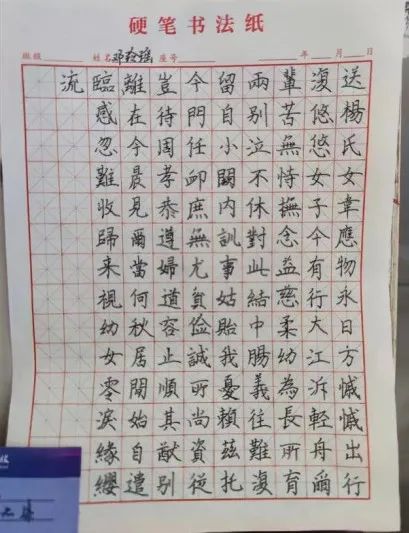 硬笔书法纸
班级 姓名 座号 年 月 日
送楊氏女韋應物永日方慼慼出行
復悠悠女子今有行大江泝輕舟爾
輩苦無恃撫念益慈柔幼為長所育
兩別泣不休對此結中腸義往難復
留自小闕內訓事姑貽我憂賴茲托
令門任卹庶無尤貧儉誠所尚資從
豈待周孝恭遵婦道容止順其猷別
離在今晨見爾當何秋居閒始自遣
臨感忽難收歸来視幼女零淚緣纓
流